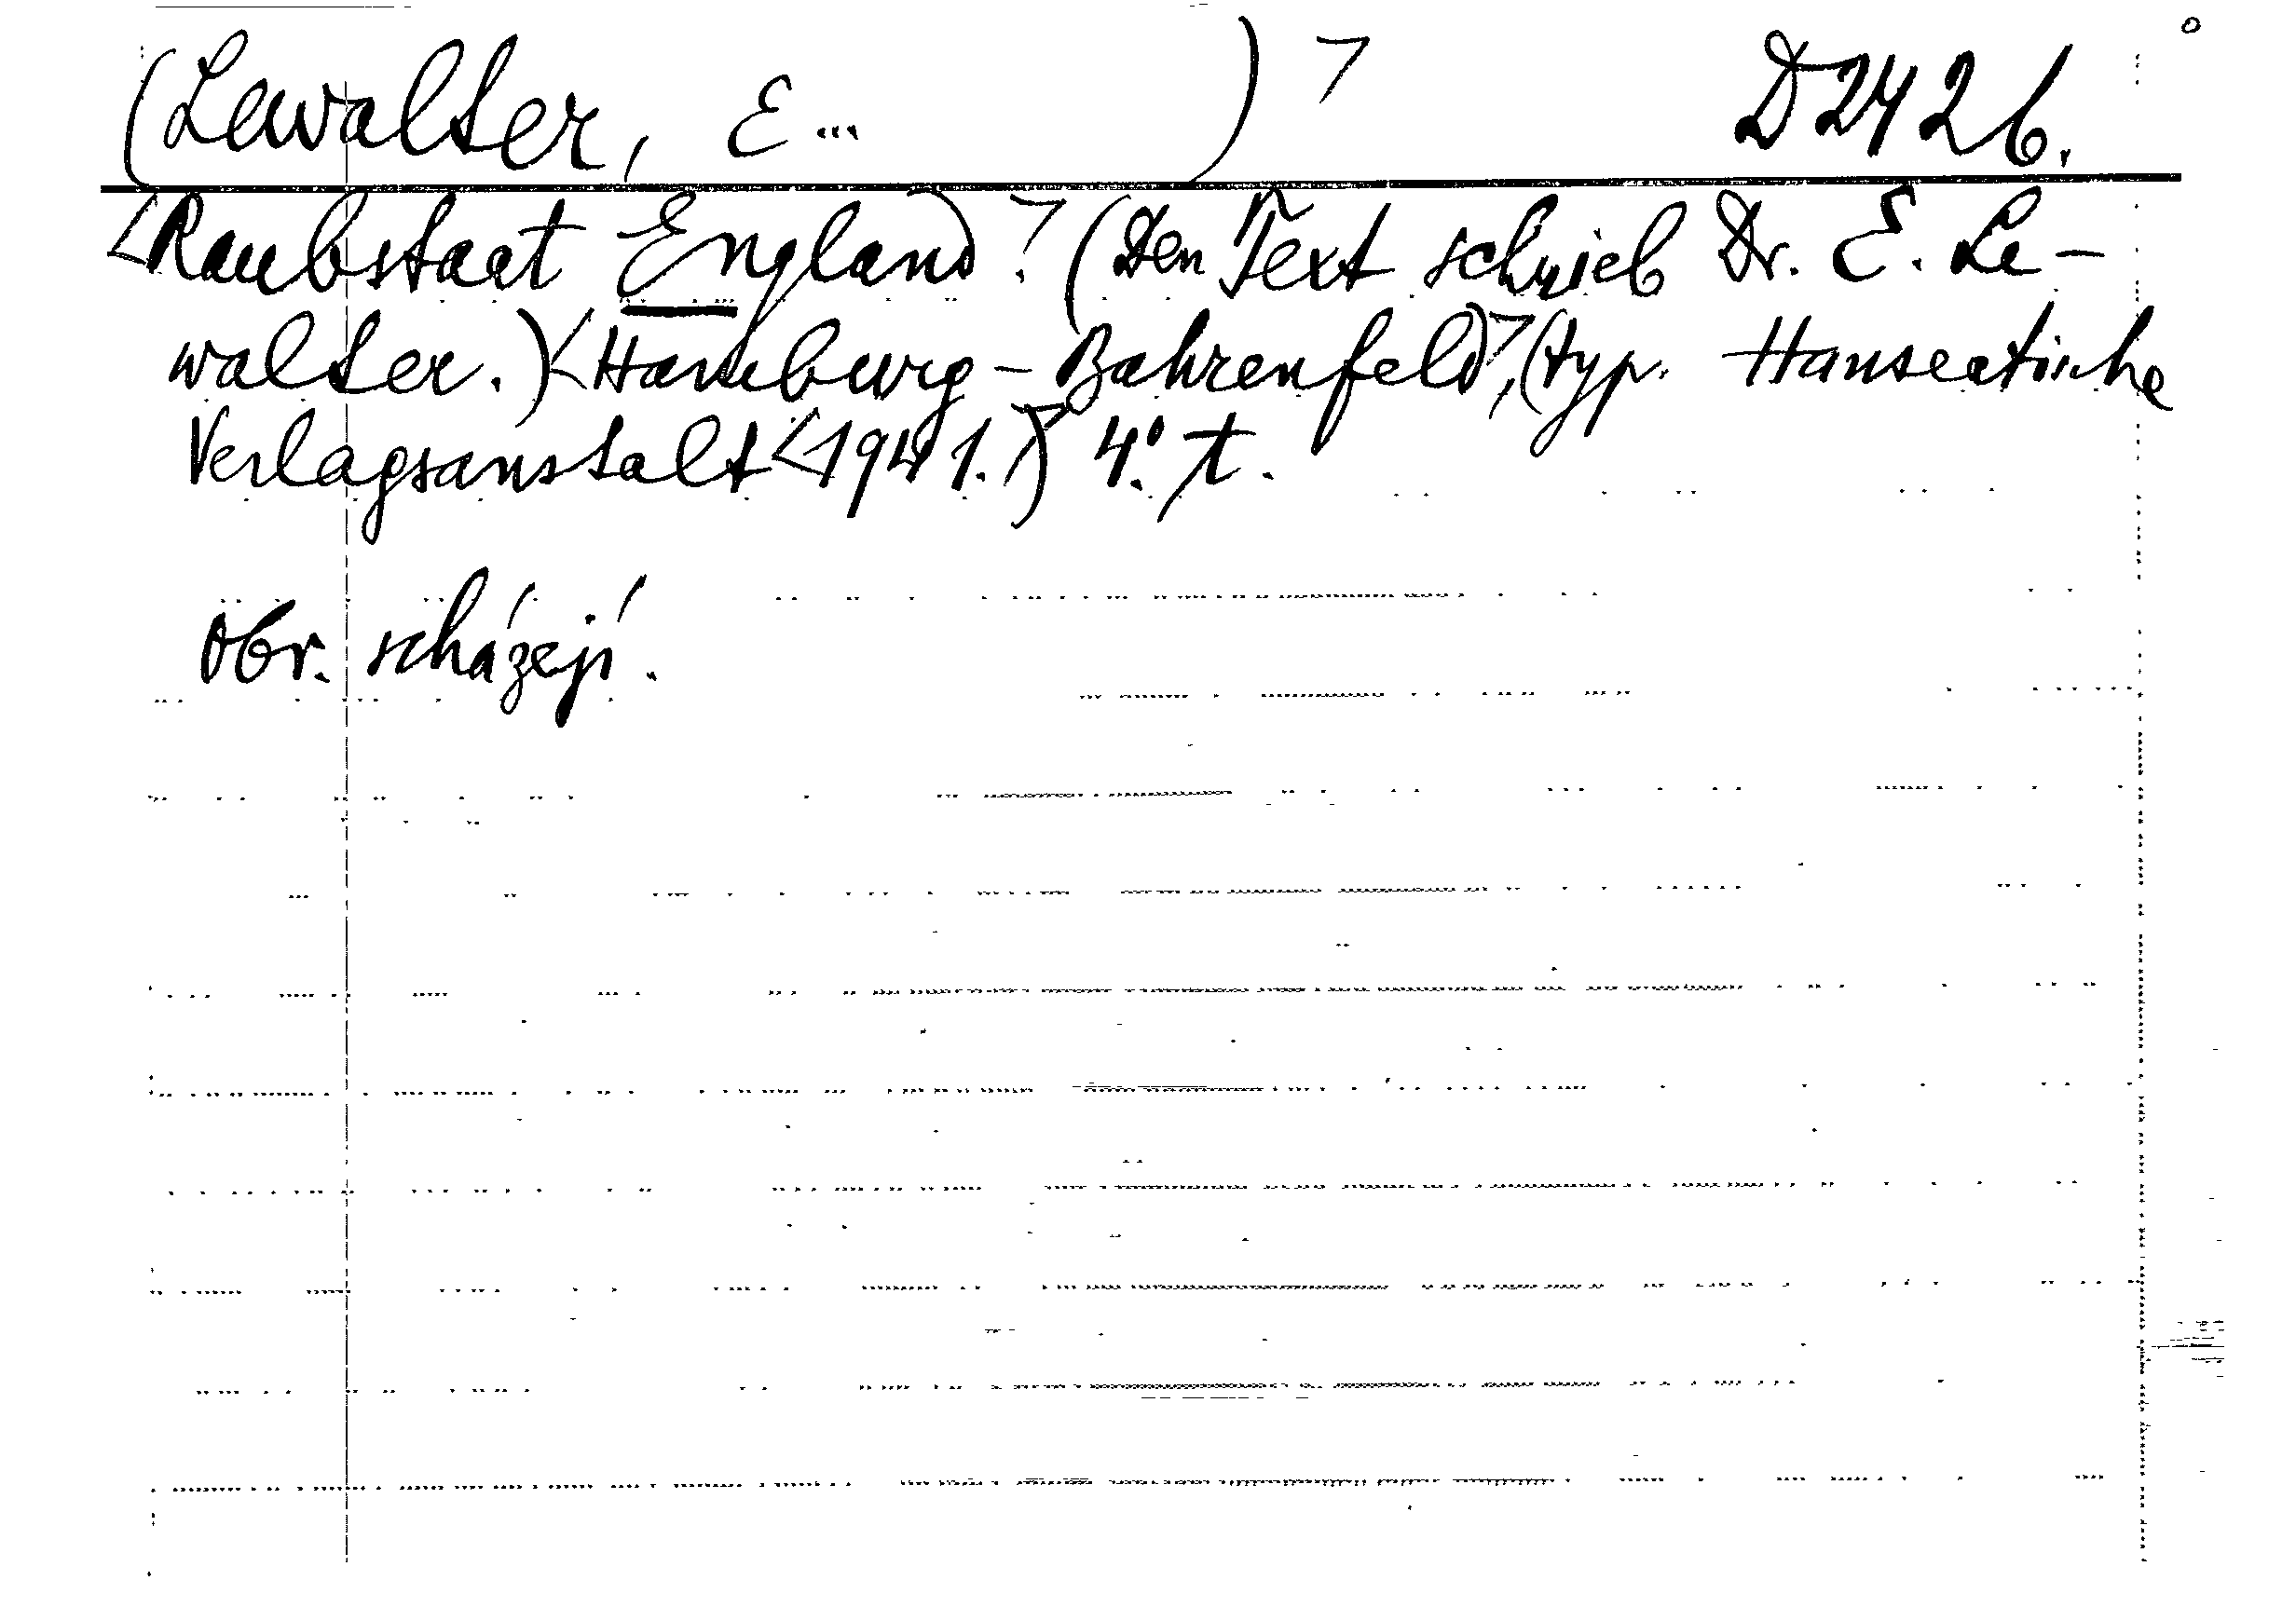 (Lewalter, E... )> D 2426.
<Raubstaat England>. (Den Text schrieb Dr. E. Le-
walter.) <Hamburg-Bahrenfeld>, (typ. Hanseatische
Verlagsanstalt <1941.>) 4°. t.
Obr. scházejí.